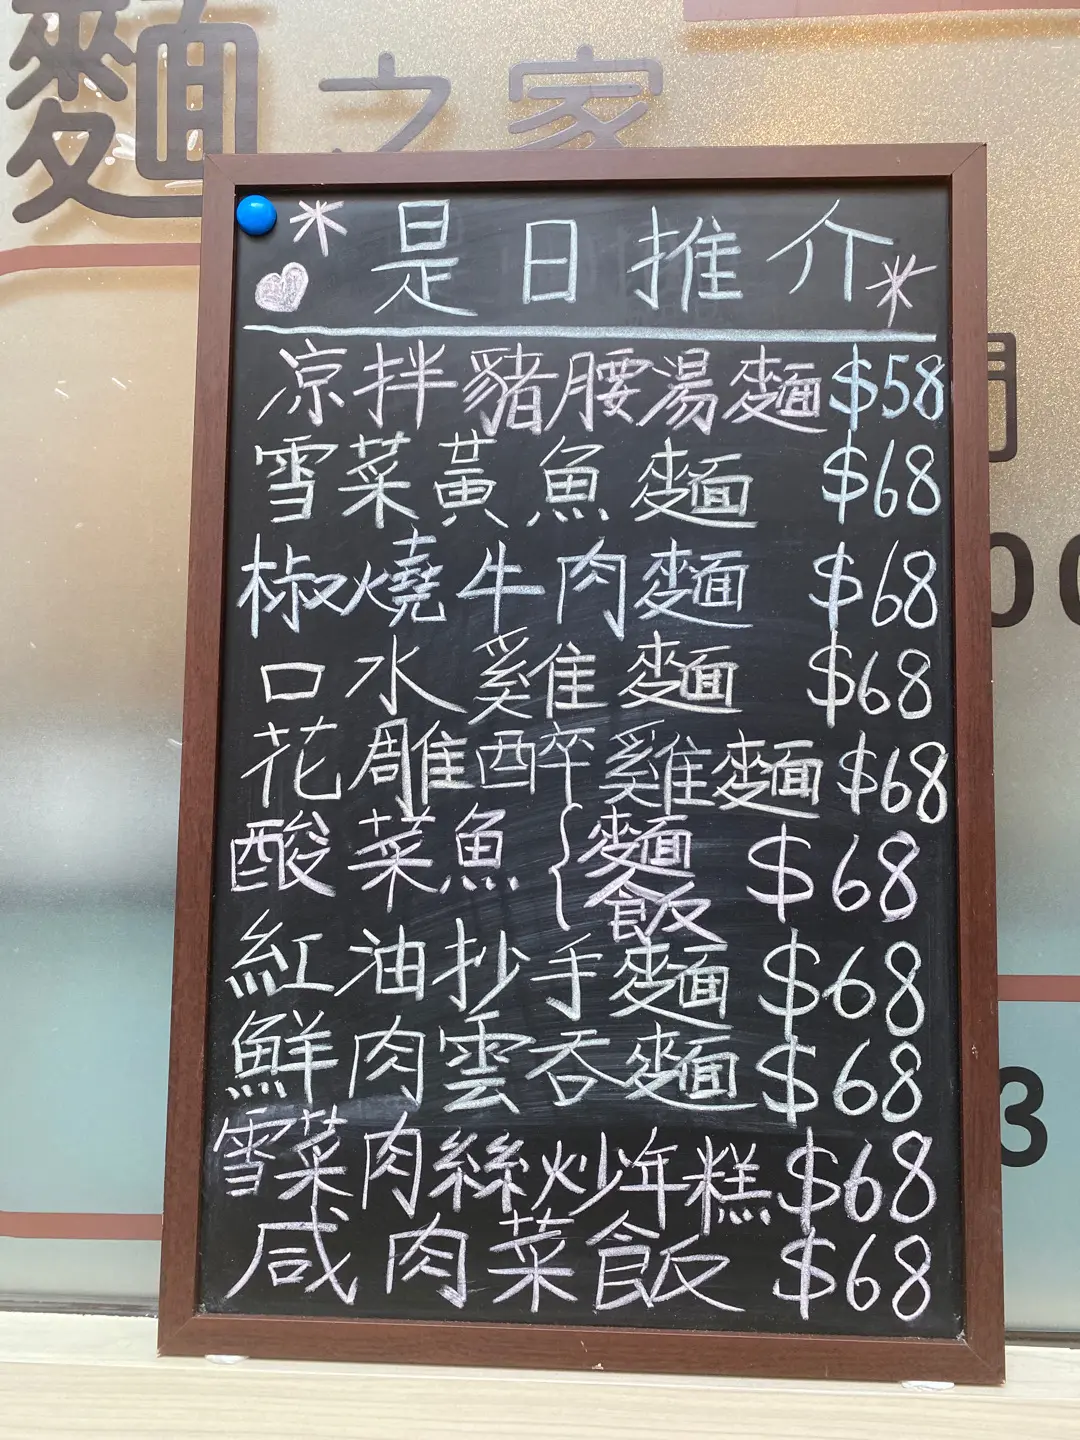 麵之家
是日推介
凉拌豬腰湯麵 $58
雪菜黃魚麵 $68
椒燒牛肉麵 $68
口水雞麵 $68
花雕醉雞麵 $68
酸菜魚{麵 飯 $68
紅油抄手麵 $68
鮮肉雲吞麵 $68
雪菜肉絲炒年糕 $68
咸肉菜飯 $68
3